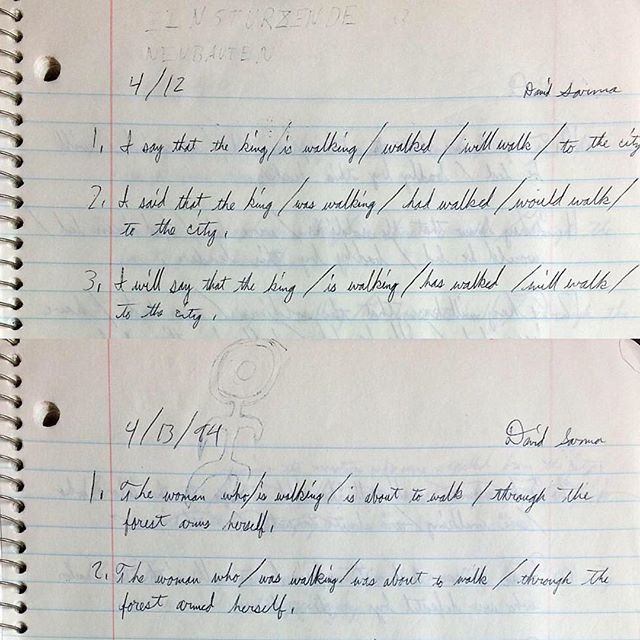 EINSTÜRZENDE
NEUBAUTEN
4/12 David Sarma
1. I say that the king/is walking/walked/will walk/to the city
2. I said that the king/was walking/had walked/would walk/
to the city.
3. I will say that the king/is walking/has walked/will walk/
to the city.
4/13/94 David Sarma
1. The woman who/is walking/is about to walk/through the
forest arms herself.
2. The woman who/was walking/was about to walk/through the
forest armed herself.